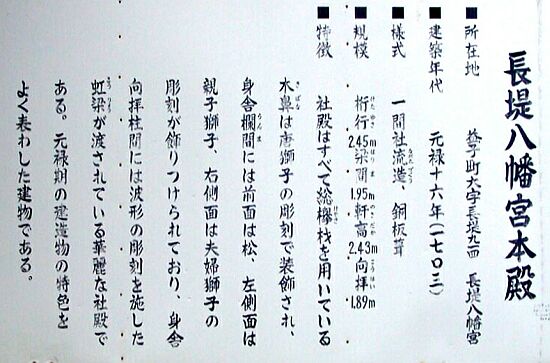 長堤八幡宮本殿
■ 所在地 益子町大字長堤九四 長堤八幡宮
■ 建築年代 元禄十六年(一七〇三)
■ 様式 一間社流造、銅板葺
■ 規模 桁行2.45m梁間1.95m軒高2.43m向拝1.89m
■ 特徴 社殿はすべて総欅材を用いている
木鼻は唐獅子の彫刻で装飾され、
身舎欄間には前面は松、左側面は
親子獅子、右側面は夫婦獅子の
彫刻が飾りつけられており、身舎
向拝柱間には波形の彫刻を施した
虹梁が渡されている華麗な社殿で
ある。元禄期の建造物の特色を
よく表わした建物である。